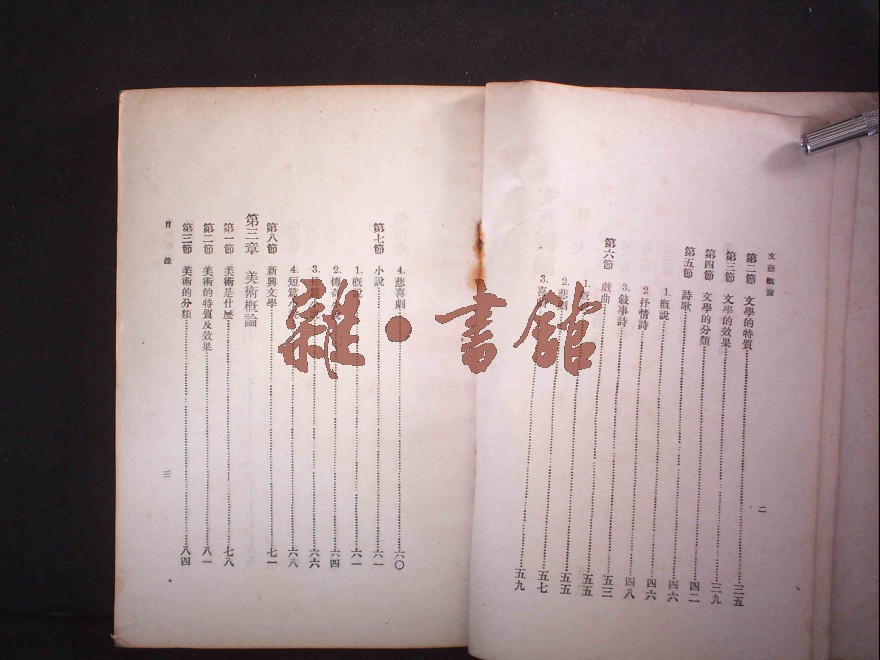 文藝概論
第二節 文學的特質……三五
第三節 文學的效果……三九
第四節 文學的分類……四二
第五節 詩歌……四六
1. 概說……四六
2. 抒情詩……四六
3. 敍事詩……四八
第六節 戲曲……五三
1. 概……五五
2. 悲劇……五五
3. 喜……五七
……五九
二
4. 悲喜劇……六〇
第七節 小說……六一
1. 概說……六一
2. 傳奇……六四
3. 長篇……六六
4. 短篇小……六八
第八節 新興文學……七一
第三章 美術概論
第一節 美術是什麼……七八
第二節 美術的特質及效果……八一
第三節 美術的分類……八四
目錄
三
雜·書館